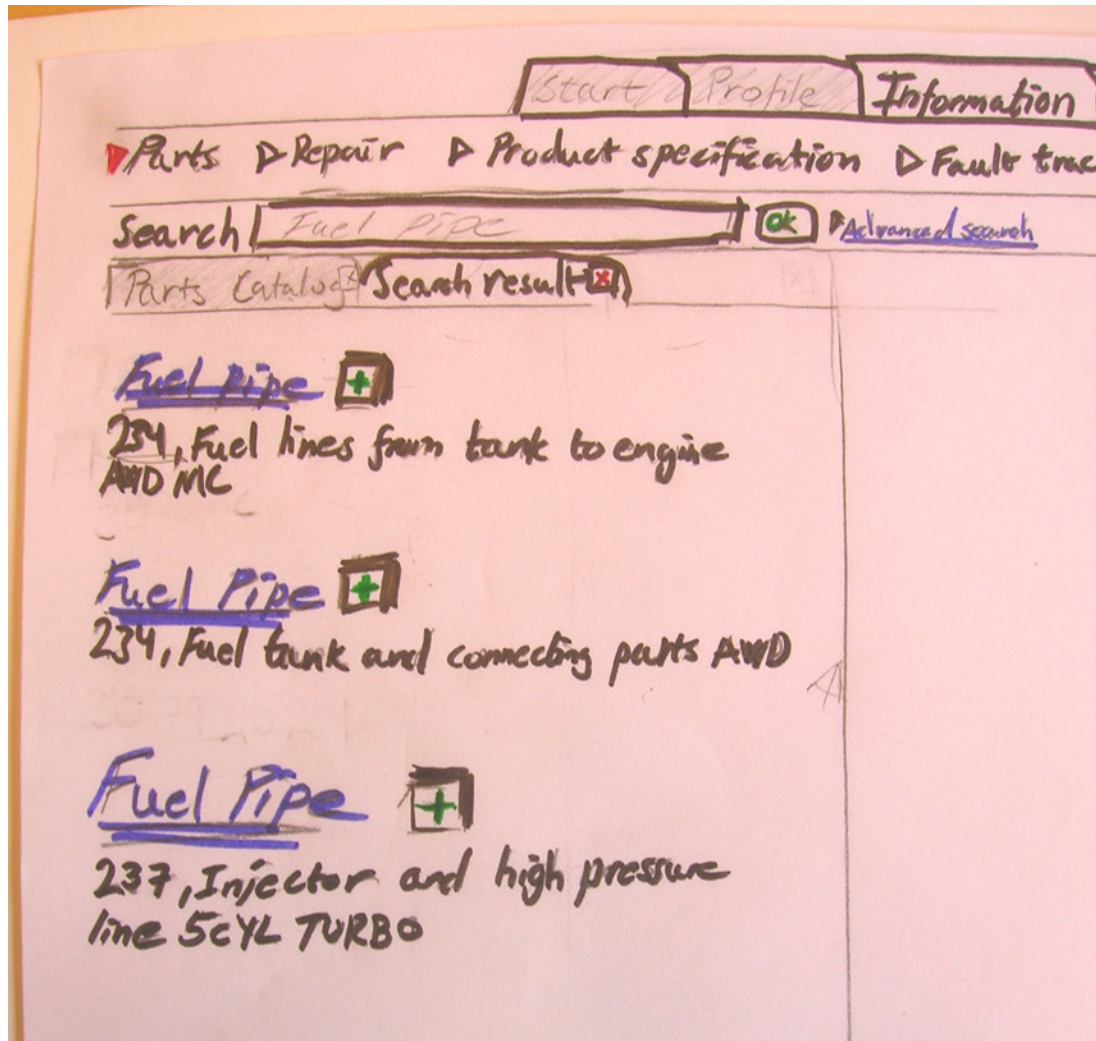 Start Profile Information
Parts Repair Product specification Fault trac
Search Fuel pipe ok Advanced search
Parts Catalog Search result
Fuel pipe +
234, Fuel lines from tank to engine
AWD MC
Fuel Pipe +
234, Fuel tank and connecting parts AWD
Fuel Pipe +
237, Injector and high pressure
line 5CYL TURBO